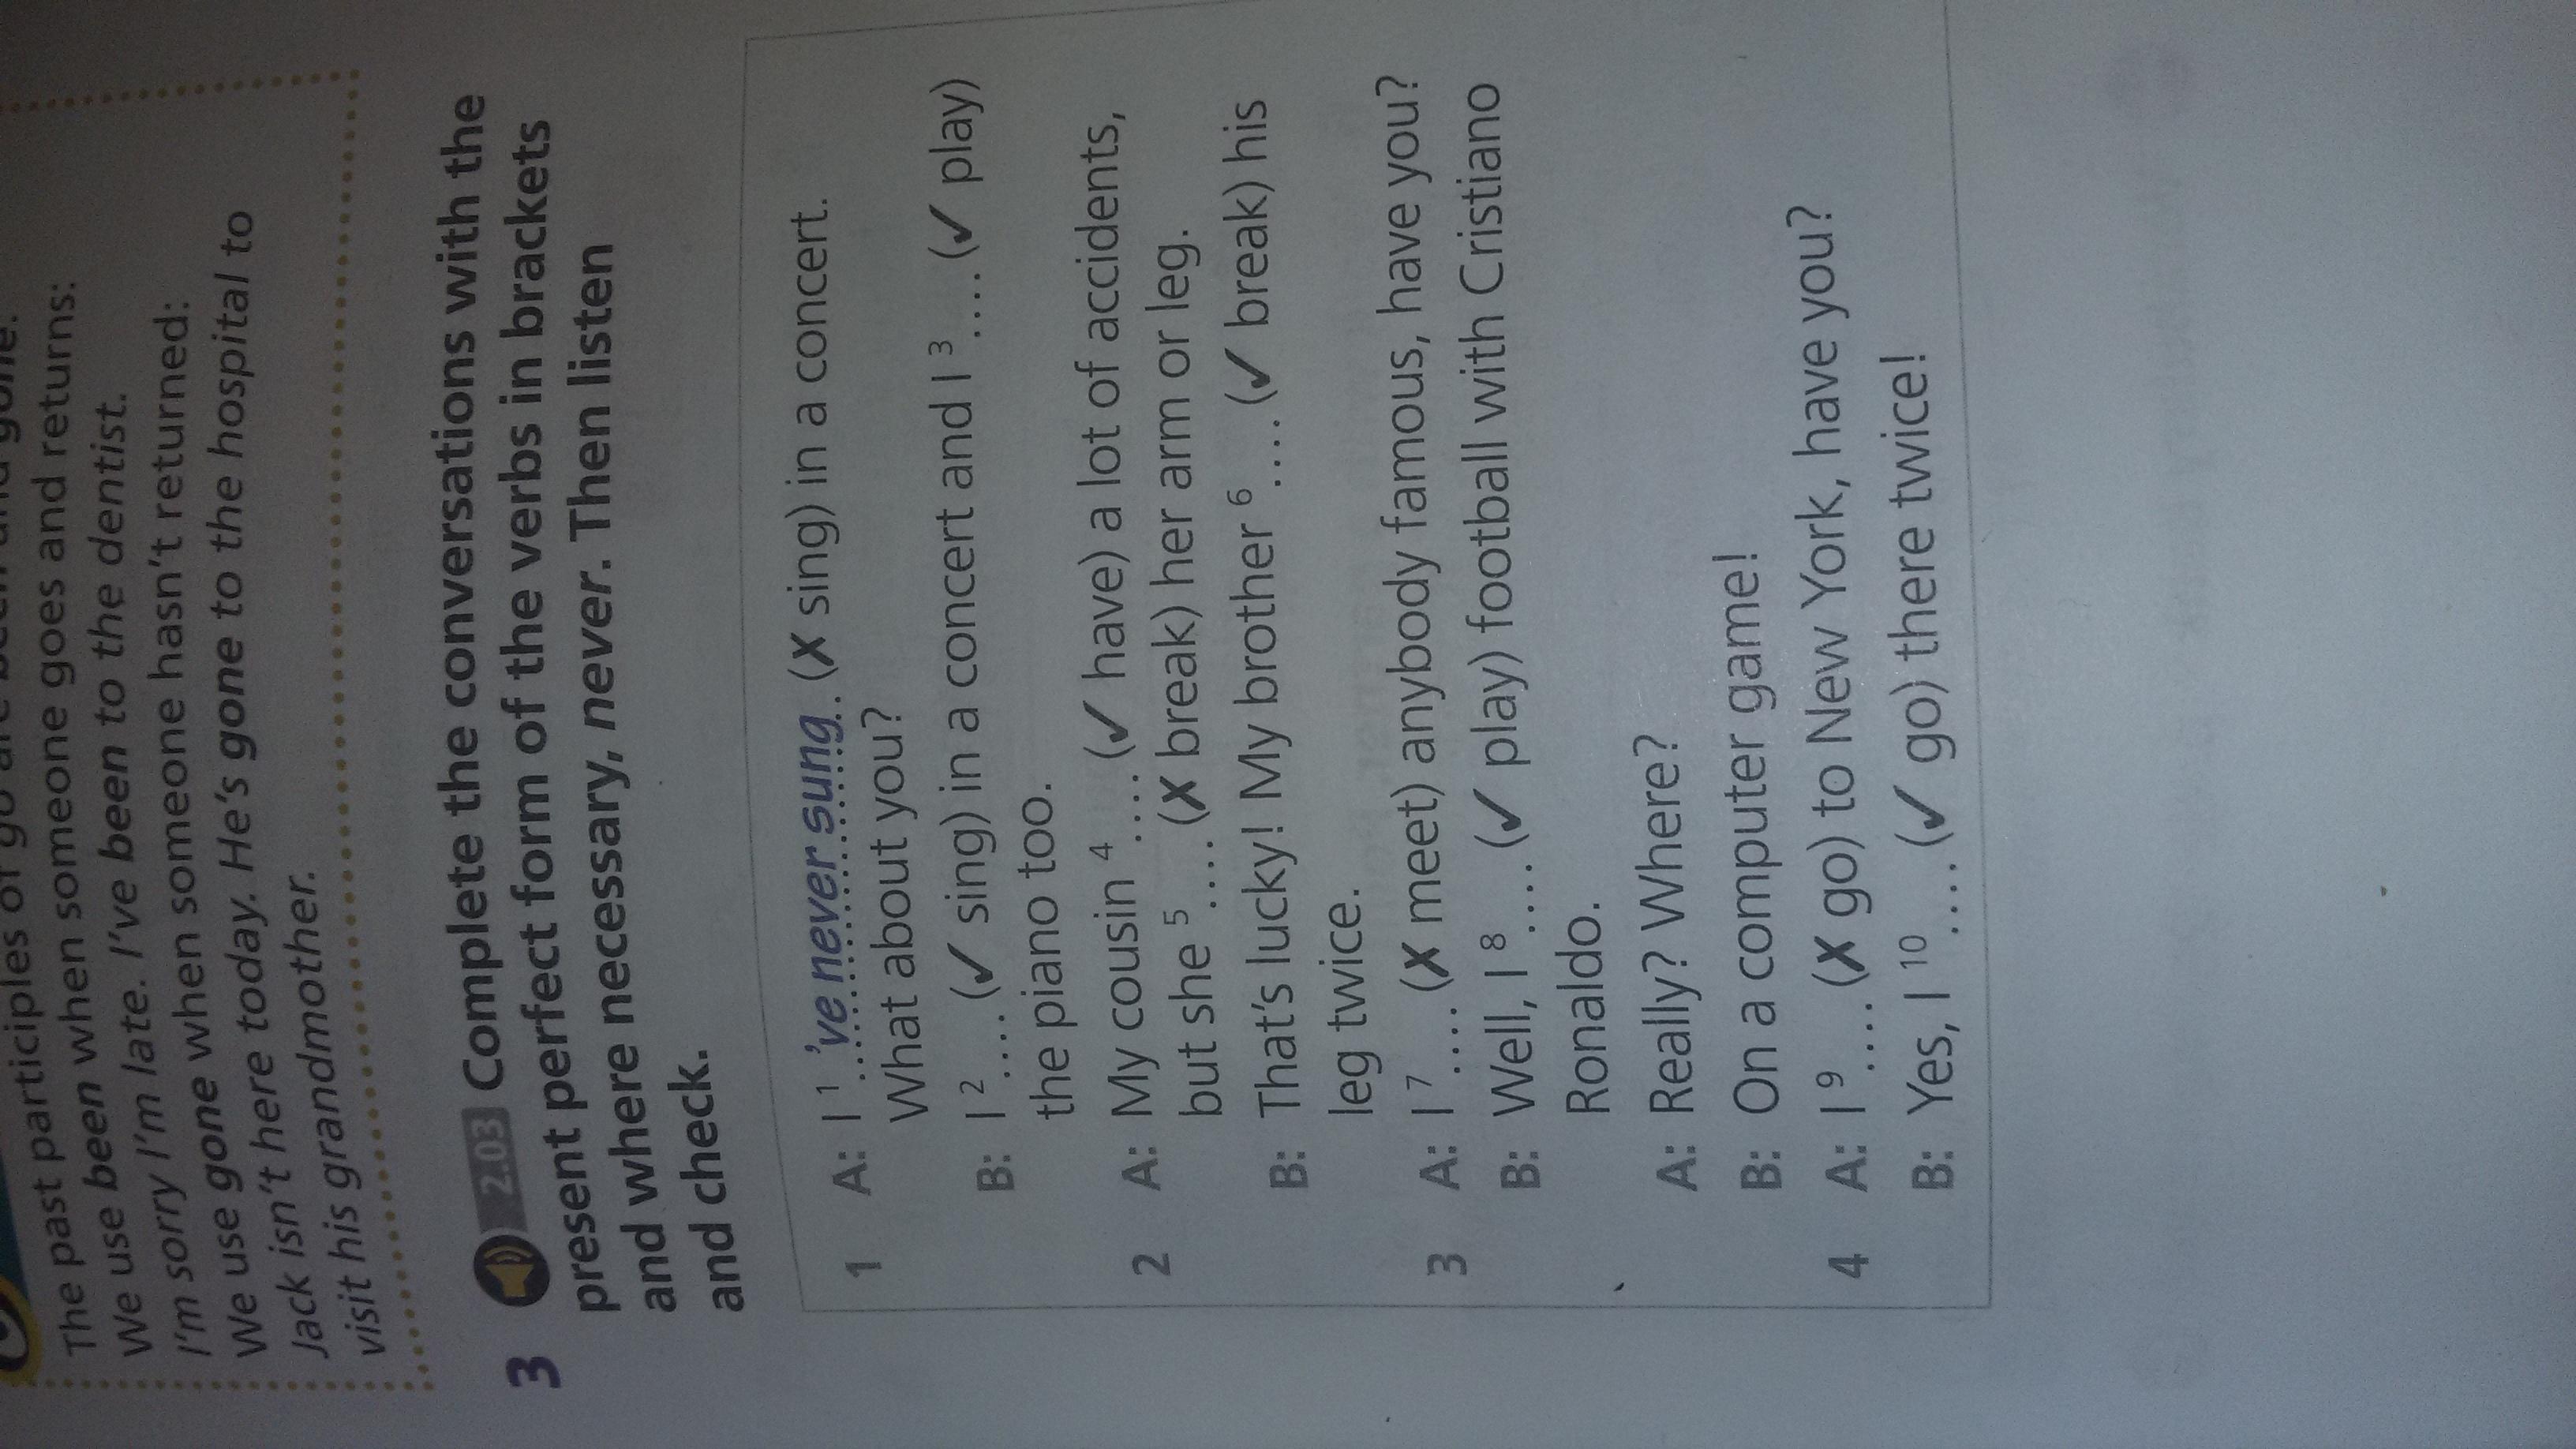 The past participles of go are been and gone.
We use been when someone goes and returns:
I'm sorry I'm late. I've been to the dentist.
We use gone when someone hasn't returned:
Jack isn't here today. He's gone to the hospital to
visit his grandmother.
3 2.03 Complete the conversations with the
present perfect form of the verbs in brackets
and where necessary, never. Then listen
and check.
1 A: I 1 've never sung (✗ sing) in a concert.
What about you?
B: I 2 .... (✓ sing) in a concert and I 3 .... (✓ play)
the piano too.
2 A: My cousin 4 .... (✓ have) a lot of accidents,
but she 5 .... (✗ break) her arm or leg.
B: That's lucky! My brother 6 .... (✓ break) his
leg twice.
3 A: I 7 .... (✗ meet) anybody famous, have you?
B: Well, I 8 .... (✓ play) football with Cristiano
Ronaldo.
A: Really? Where?
B: On a computer game!
4 A: I 9 .... (✗ go) to New York, have you?
B: Yes, I 10 .... (✓ go) there twice!